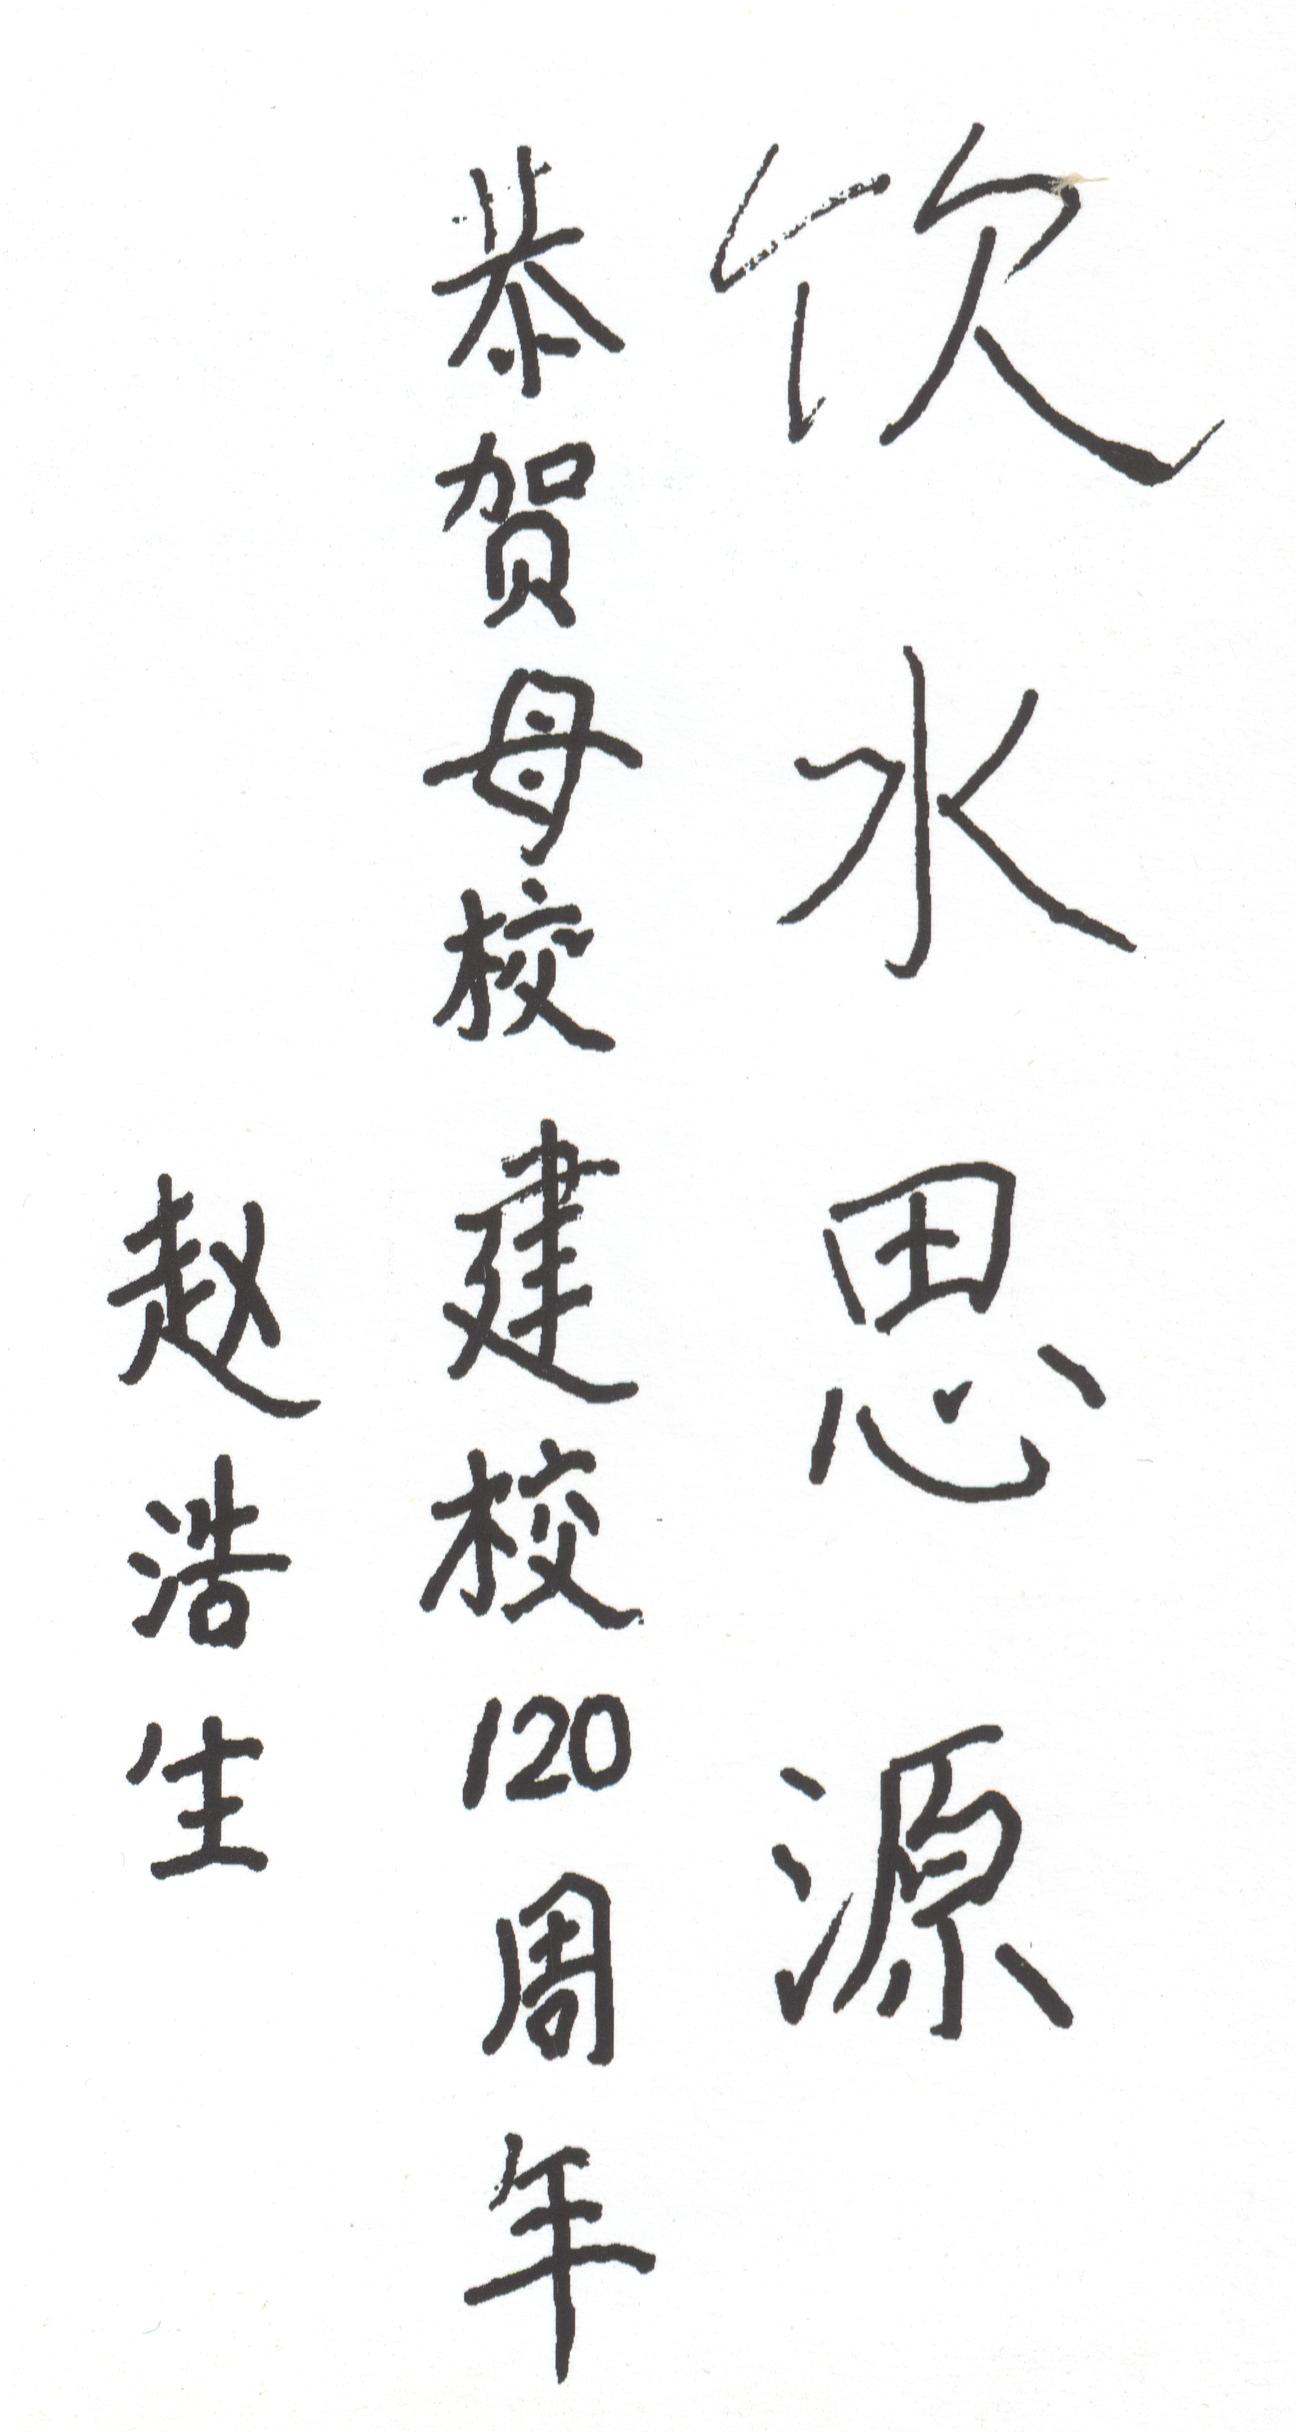 饮水思源
恭贺母校建校120周年
赵浩生